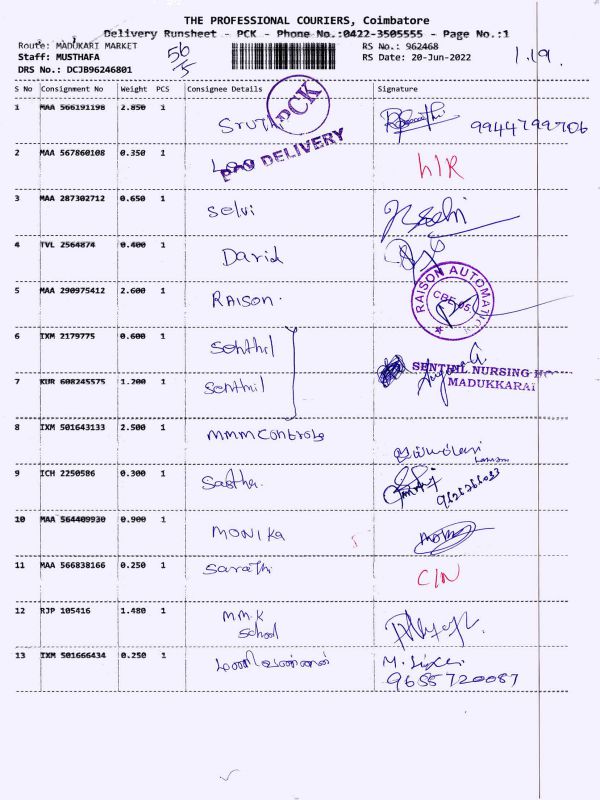 THE PROFESSIONAL COURIERS, Coimbatore
Delivery Runsheet - PCK - Phone No.:0422-3505555 - Page No.:1
Route: MADUKARI MARKET
RS No.: 962468
Staff: MUSTHAFA
RS Date: 20-Jun-2022
DRS No.: DCJB96246801
56/5
1.19.
S No Consignment No Weight PCS Consignee Details Signature
1 MAA 566191198 2.850 1 9944799706
PCK
2 MAA 567860108 0.350 1 h/R
DELIVERY
3 MAA 287302712 0.650 1 Selvi
4 TVL 2564874 0.400 1 David
5 MAA 290975412 2.600 1 RAISON.
RAISON AUTOMATI
CBE-05
6 IXM 2179775 0.600 1 Senthil
SENTHIL NURSING
MADUKKARAI
7 KUR 608245575 1.200 1 Senthil
8 IXM 501643133 2.500 1 MMM Controls
9 ICH 2250586 0.300 1 Sastha.
10 MAA 564409930 0.900 1 MONIKA
11 MAA 566838166 0.250 1 Sarathi C/N
12 RJP 105416 1.480 1 M.M.K
School
13 IXM 501666434 0.250 1 மணிவண்ணன்
9655720087